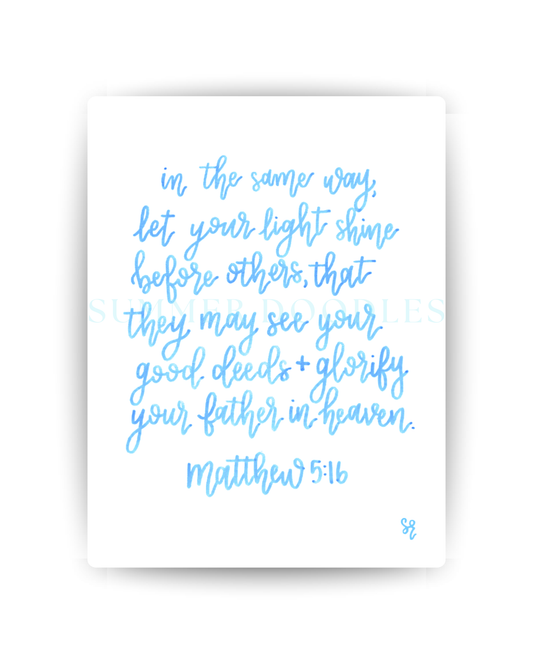 in the same way,
let your light shine
before others, that
SUMMER DOODLES
they may see your
good deeds + glorify
your father in heaven.
matthew 5:16